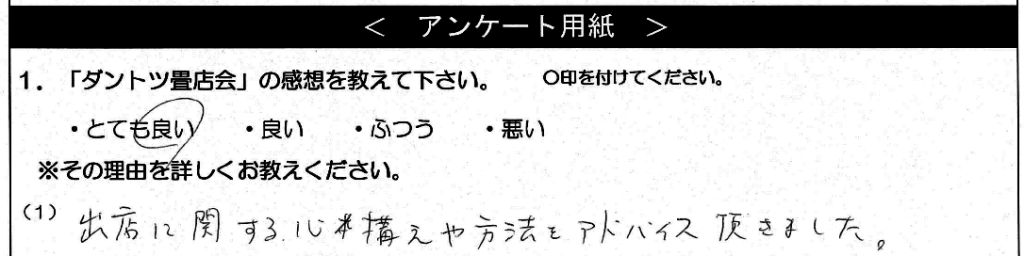 ＜ アンケート用紙 ＞
1．「ダントツ畳店会」の感想を教えて下さい。　○印を付けてください。
・とても良い　・良い　・ふつう　・悪い
※その理由を詳しくお教えください。
(1) 出店に関する心構えや方法をアドバイス頂きました。